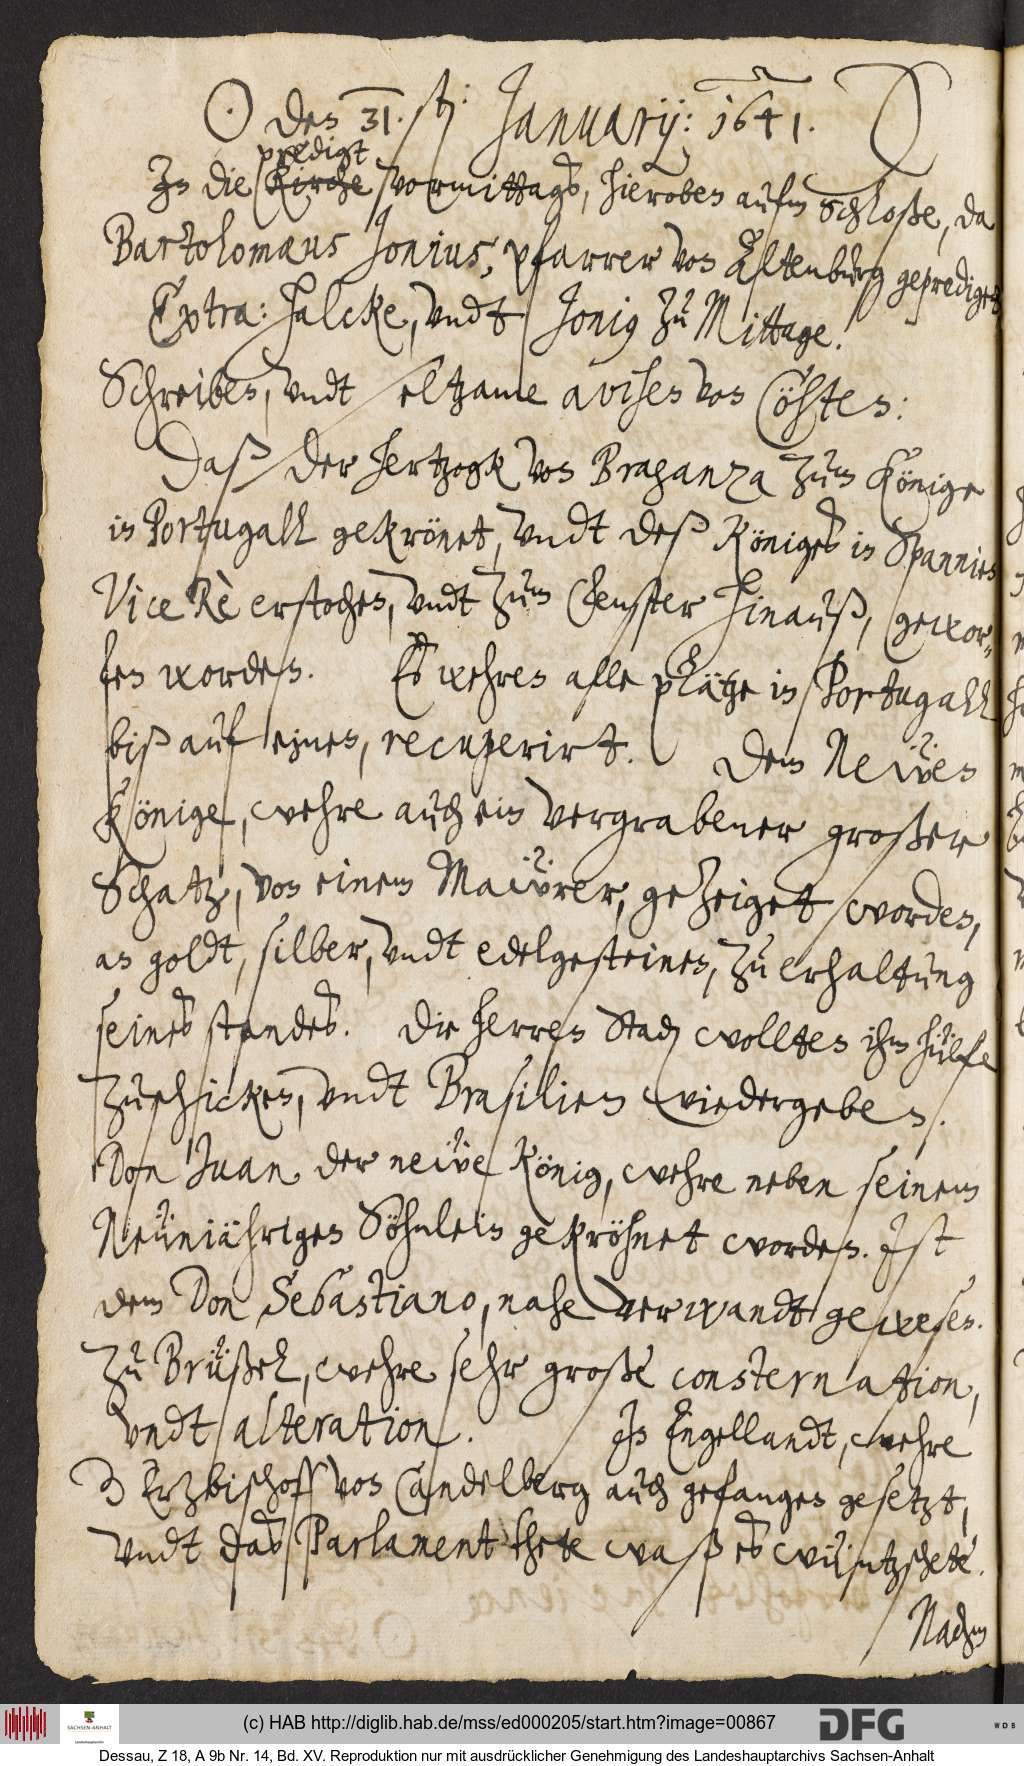 ☉ den 31. sten: Januarij: 1641.
predigt
In die Kirche vormittags, hieroben aufm Schloße, da
Bartolomæus Jonius, pfarrer von Altenburg geprediget
Extra: Halcke, vndt Jonius zu Mittage.
Schreiben, vndt seltzame avisen von Cöhten:
Daß der Hertzogk von Braganza zum Könige
in Portugall gekrönet, vndt deß Königes in Spannien
Vice Rè erstochen, vndt zum Fenster hinauß, gewor-
fen worden. Es wehren alle plätze in Portugall
biß auf einen, recuperirt. Dem Neẅen
Könige, wehre auch ein vergrabener großer
Schatz, von einem Maẅrer, gezeiget worden,
an goldt, silber, vndt edelgesteinen, zu erhaltung
seines standes. Die Herren Staden wollten ihm hülfe
zuschicken, vndt Brasilien wiedergeben.
Don Juan der neẅe König, wehre neben seinem
Neünjährigen Söhnlein gekröhnet worden. Ist
dem Don Sebastiano, nahe verwandt gewesen.
Zu Brüßel, wehre sehr große consternation,
vndt alteration. In Engellandt, wehre
der Ertzbischoff von Candelberg auch gefangen gesetzt,
vndt das Parlament thete waß es wüntzschete.
Nachm
(c) HAB http://diglib.hab.de/mss/ed000205/start.htm?image=00867
SACHSEN-ANHALT
DFG
WDB
Dessau, Z 18, A 9b Nr. 14, Bd. XV. Reproduktion nur mit ausdrücklicher Genehmigung des Landeshauptarchivs Sachsen-Anhalt